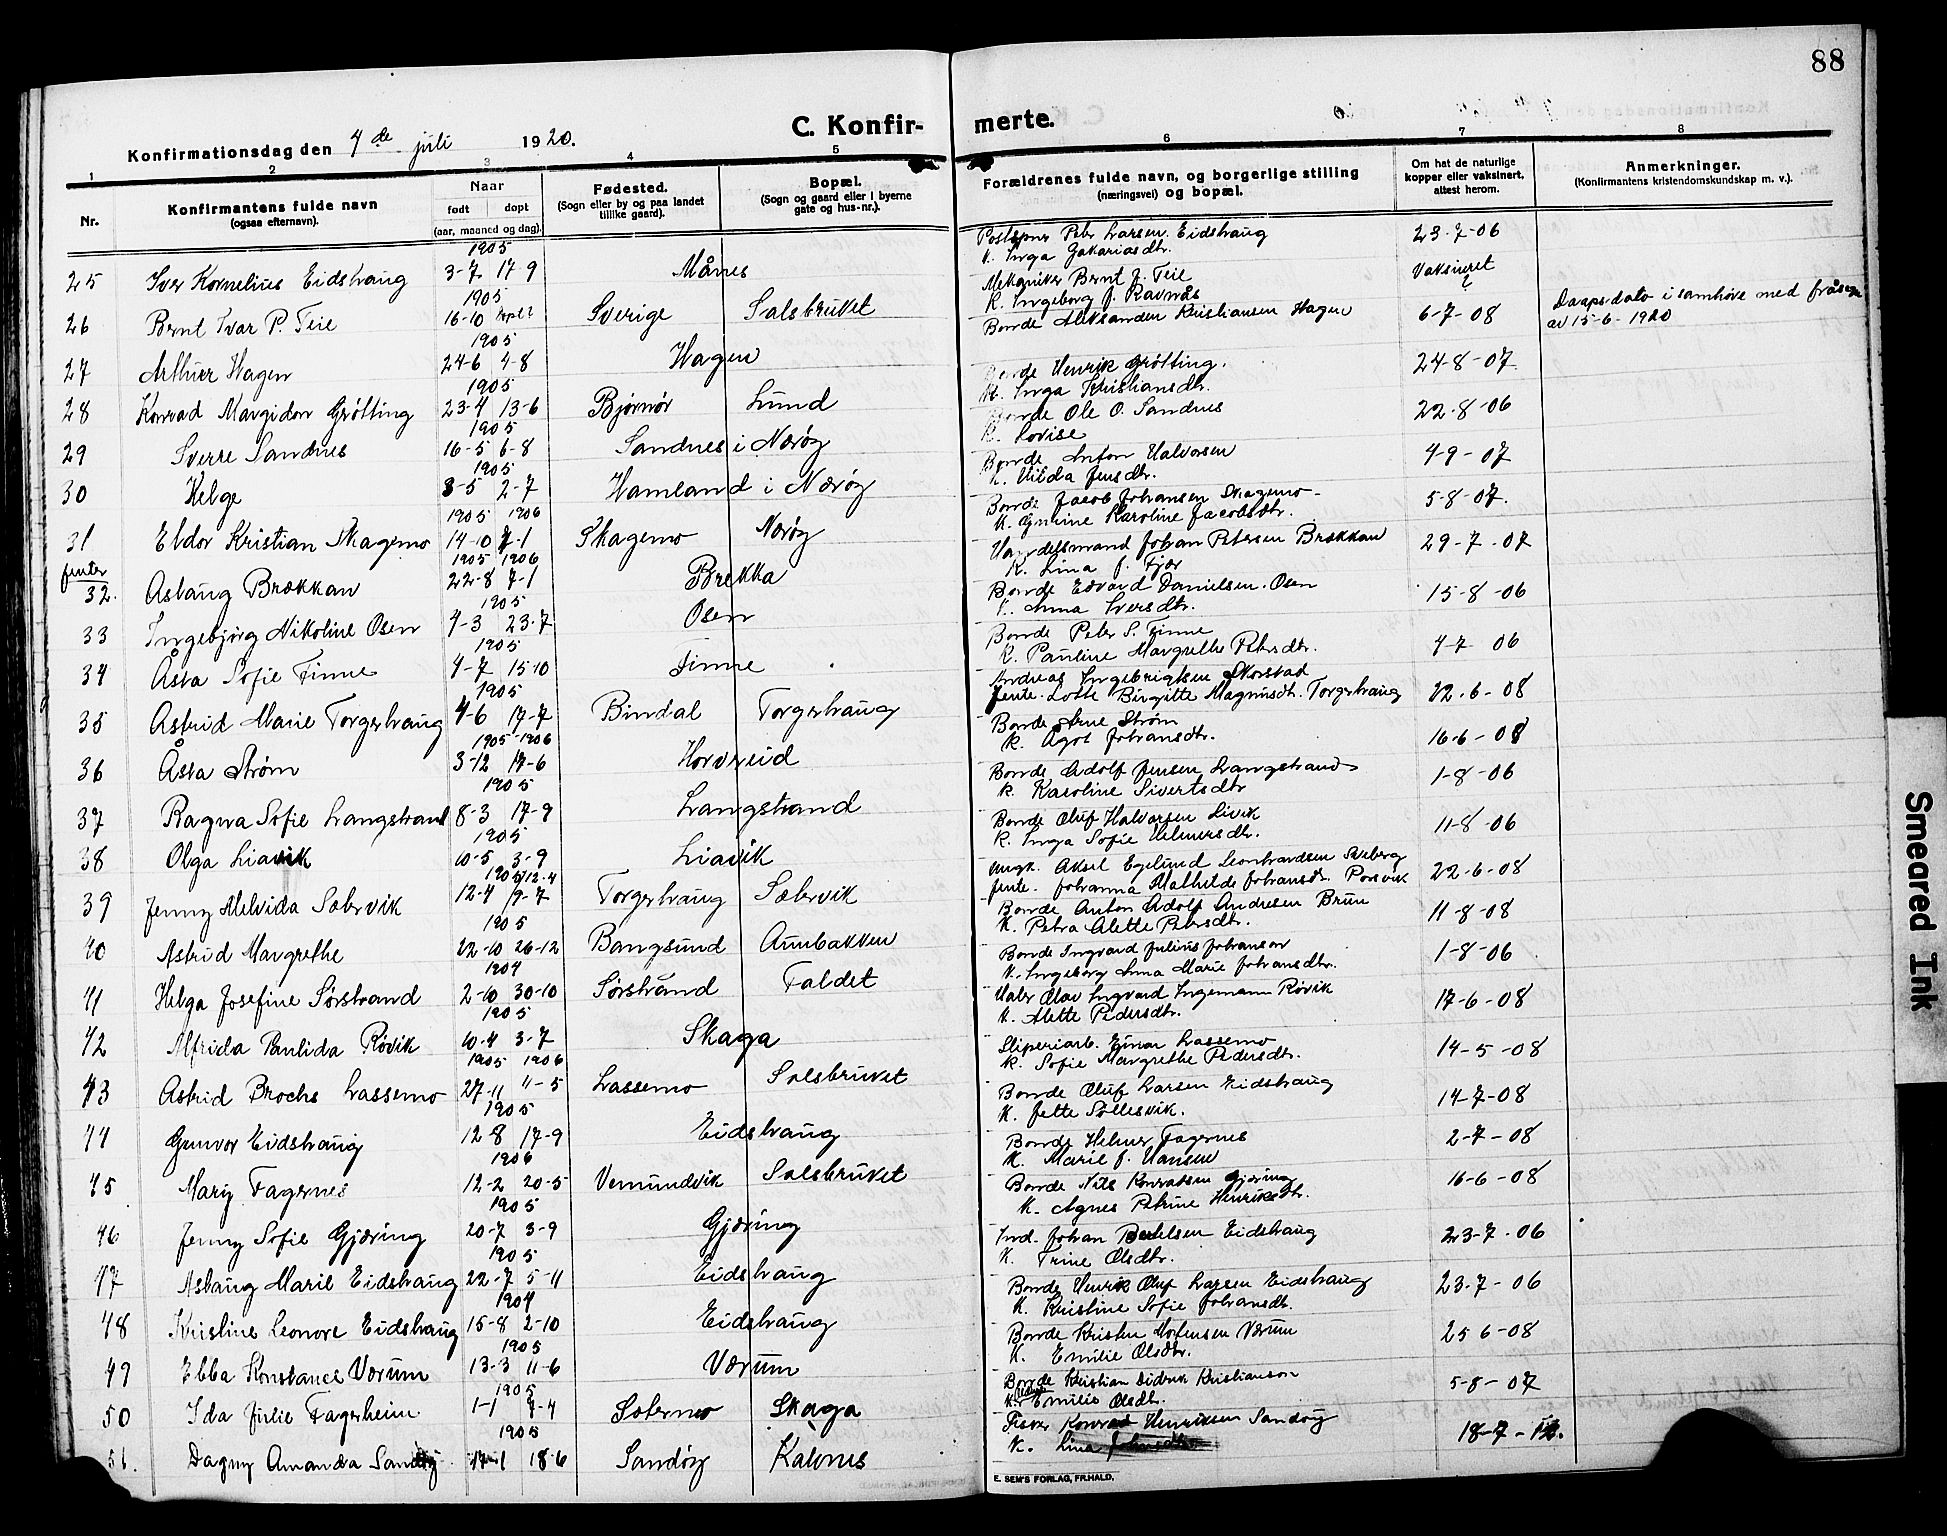 88
C. Konfir- merte.
Konfirmationsdag den 4de juli 1920.
1 2 3 4 5 6 7 8
Nr.
Konfirmantens fulde navn
(ogsaa efternavn).
Naar
født døpt
(aar, maaned og dag).
Fødested.
(Sogn eller by og paa landet
tillike gaard).
Bopæl.
(Sogn og gaard eller i byerne
gate og hus-nr.).
Forældrenes fulde navn, og borgerlige stilling
(næringsvei) og bopæl.
Om hat de naturlige
kopper eller vaksinert,
attest herom.
Anmerkninger.
(Konfirmantens kristendomskundskap m. v.).
1905
25 Iver Kornelius Eidshaug 3-7 17-9 Månes Larsen Eidshaug 23-7-06
K. Inga Zakariasdtr.
1905
26 Bernt Ivar P. Teie 16-10 Sverige Salsbruket Mekaniker Bernt J. Teie Vaksineret
K. Ingeborg J. Ravnås
1905
27 Arthur Hagen 24-6 4-8 Hagen Bonde Aleksander Kristiansen Hagen 6-7-08 Daapsdato i samhøve med
av 15-6-1920
1905
28 Konrad Margidon Grøtting 23-4 13-6 Bjørnør Lund Henrik Grøtting. 24-8-07
K. Inga Kristiansdtr.
1905
29 Sverre Sandnes 16-5 6-8 Sandnes i Nærøy Ole O. Sandnes 22-8-06
K. Lovise
1905
30 Helge 3-5 2-7 Hamland i Nærøy Bonde Anton Halvorsen 4-9-07
K. Hilda Jensdtr.
1905 1906
31 Eldor Kristian Skagemo 14-10 7-1 Skagemo Nærøy Bonde Jacob Johansen Skagemo 5-8-07.
K. Karoline Jacobsdtr.
Jenter 1905 1906
32. Aslaug Brækkan 22-8 7-1 Brekka Handelsmand Johan Petersen Brækkan 29-7-07
K. Lina J. Fjær
1905
33 Ingebjørg Nikoline Osen 4-3 23-7 Osen Bonde Edvard Danielsen Osen 15-8-06
K. Anna Iversdtr.
1905
34 Åsta Sofie Finne 4-7 15-10 Finne Bonde Peter S. Finne 4-7 06
K. Pauline Margrethe Petersdtr.
1905
35 Astrid Marie Torgerhaug 4-6 17-7 Bindal Torgerhaug Andreas Ingebrigtsen 22-6-08
Jente. Lotte Birgitte Magnusdt. Torgerhaug
1905-1906
36 Åsta Strøm 3-12 17-6 Horvereid Bonde Arne Strøm 16-6-08
K. Ågot Johansdtr.
1905
37 Ragna Sofie Langstrand 8-3 17-9 Langstrand Bonde Adolf Jensen Langstrand 1-8-06
K. Karoline Sivertsdtr
1905
38 Olga Liavik 10-5 3-9 Liavik Bonde Oluf Halvorsen Livik 11-8-06
K. Inga Sofie Helmersdtr.
1905/12-4
39 Jenny Melvida Salsvik 12-4 9-7 Torgerhaug Salsvik Ungk. Aksel Egelund Leonhardsen 22-6-08
Jente. Johanna Mathilde Johansdt.
1905
40 Astrid Margrethe 22-10 26-12 Bangsund Aunbakken Bonde Anton Adolf Andresen Brun 11-8-08
K. Petra Alette Petersdtr.
1904
41 Helga Josefine Sørstrand 2-10 30-10 Sørstrand Faldet Bonde Ingvard Julius Johansen 1-8-06
K. Ingeborg Anna Marie Johansdtr.
1905
42 Alfrida Paulida Røvik 10-4 3-7 Skaga Olav Ingvard Ingemann Røvik 17-6-08
K. Alette Pedersdtr.
1905 1906
43 Astrid Brochs Lassemo 27-11 11-5 Lassemo Salsbruket Sliperiarb. Einar Lassemo 14-5-08
K. Sofie Margrethe Pedersdtr.
1905
44 Gunvor Eidshaug 12-8 17-9 Eidshaug Bonde Oluf Larsen Eidshaug 14-7-08
K. Jette Sollesvik.
1906
45 Mary Fagernes 12-2 20-5 Vemundvik Salsbruket Bonde Helmer Fagernes 2-7-08
K. Marie J. Hansen
1905
46 Jenny Sofie Gjæring 20-7 3-9 Gjæring Bonde Nils Konradsen Gjæring 16-6-08
K. Agnes Petrine Henriksdtr.
1905
47 Aslaug Marie Eidshaug 22-7 5-11 Eidshaug Ind. Johan Eidshaug 23-7-06
K. Trine Olsdtr.
1904
48 Kristine Leonore Eidshaug 15-8 2-10 Eidshaug Bonde Henrik Oluf Larsen Eidshaug 23-7-06
K. Kristine Sofie Johansdt.
1905
49 Ebba Konstance Værum 13-3 11-6 Værum Bonde Værum 25 6-08
K. Emilie Olsdtr.
1905
50 Ida Julie Fagerheim 1-1 9-4 Skaga Bonde Kristian Didrik Kristianson 5-8-07
K. Emilie Olsdtr.
1905
51. Dagny Amanda Sandøy 14-1 18-6 Sandøy Kalvnes Fisker Konrad Henriksen Sandøy 18-7-12.
K. Lina
E. SEM'S FORLAG, FR.HALD.
Smeared Ink